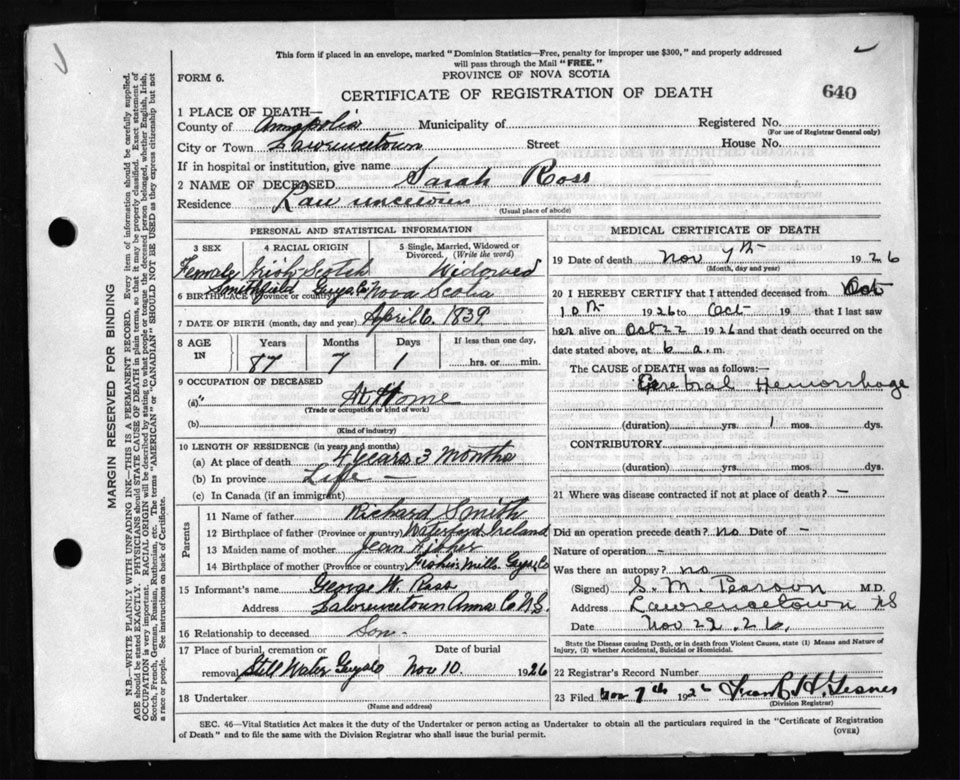 This form if placed in an envelope, marked "Dominion Statistics—Free, penalty for improper use $300," and properly addressed
will pass through the Mail "FREE."
FORM 6.
PROVINCE OF NOVA SCOTIA
CERTIFICATE OF REGISTRATION OF DEATH
640
1 PLACE OF DEATH—
County of Annapolis Municipality of
Registered No.
(For use of Registrar General only)
City or Town Lawrencetown Street House No.
If in hospital or institution, give name
2 NAME OF DECEASED Sarah Ross
Residence Lawrencetown
(Usual place of abode)
PERSONAL AND STATISTICAL INFORMATION
3 SEX 4 RACIAL ORIGIN 5 Single, Married, Widowed or
Divorced. (Write the word)
Female Irish Scotch Widowed
Smithfield Guys Co Nova Scotia
6 BIRTHPLACE (Province or country)
7 DATE OF BIRTH (month, day and year) April 6. 1839.
8 AGE
IN
Years Months Days If less than one day,
87 7 1 hrs. or min.
9 OCCUPATION OF DECEASED
(a) At Home
(Trade or occupation or kind of work)
(b)
(Kind of industry)
10 LENGTH OF RESIDENCE (in years and months)
(a) At place of death 4 years 3 months
(b) In province Life —
(c) In Canada (if an immigrant)
Parents
11 Name of father Richard Smith
12 Birthplace of father (Province or country) Waterford Ireland
13 Maiden name of mother Jean Fisher
14 Birthplace of mother (Province or country) Mills Guys Co
15 Informant's name George W. Ross
Address Lawrencetown Anna Co N.S.
16 Relationship to deceased Son.
17 Place of burial, cremation or Date of burial
removal Still Water Guys Co Nov 10 1926
18 Undertaker
(Name and address)
MEDICAL CERTIFICATE OF DEATH
19 Date of death Nov 7th 1926
(Month, day and year)
20 I HEREBY CERTIFY that I attended deceased from Oct
10th 1926 to Oct 19 that I last saw
her alive on Oct 22 1926 and that death occurred on the
date stated above, at 6 a.m.
The CAUSE OF DEATH was as follows:—
Cerebral Hemorrhage
(duration) yrs. 1 mos. dys.
CONTRIBUTORY
(duration) yrs. mos. dys.
21 Where was disease contracted if not at place of death? —
Did an operation precede death? no Date of —
Nature of operation —
Was there an autopsy? no
(Signed) S. M. Pearson M.D.
Address Lawrencetown NS
Date Nov 22. 26.
State the Disease causing Death, or in death from Violent Causes, state (1) Means and Nature of
Injury, (2) whether Accidental, Suicidal or Homicidal.
22 Registrar's Record Number
23 Filed Nov 7th 1926
(Division Registrar)
SEC. 46—Vital Statistics Act makes it the duty of the Undertaker or person acting as Undertaker to obtain all the particulars required in the "Certificate of Registration
of Death" and to file the same with the Division Registrar who shall issue the burial permit.
(OVER)
MARGIN RESERVED FOR BINDING
N.B.—WRITE PLAINLY WITH UNFADING INK—THIS IS A PERMANENT RECORD. Every item of information should be carefully supplied.
AGE should be stated EXACTLY. PHYSICIANS should STATE CAUSE OF DEATH in plain terms, so that it may be properly classified. Exact statement of
OCCUPATION is very important. RACIAL ORIGIN will be described by stating to what people or tongue the deceased person belonged, whether English, Irish,
Scotch, French, German, Russian, Ruthenian, etc. The terms "AMERICAN" or "CANADIAN" SHOULD NOT BE USED as they express citizenship but not
a race or people. See instructions on back of Certificate.